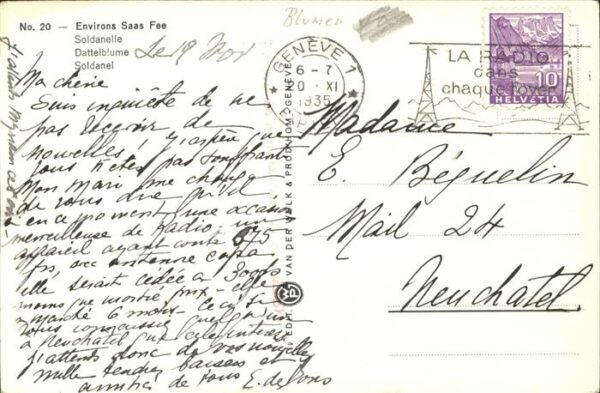 No. 20 – Environs Saas Fee
Soldanelle
Dattelblume
Soldanel
Blumen
Le 19 Nov
Ma chérie
Suis inquiète de ne
pas recevoir de
nouvelles! J'espère que
vous n'êtes pas souffrant
Mon Mari me charge
de vous dire qu'il
en ce moment une occasion
merveilleuse de Radio, un
appareil ayant coûté 875
frs, avec antenne
elle serait cédée à 300 frs
moins que moitié prix - elle
a marché 6 mois - Ceci si
vous connaissiez quelqu'un
à Neuchatel que cela intéresse
J'attends donc de vos nouvelles
mille tendres baisers et
amitiés de tous E. de
EDIT. VAN DER WALK & PRODUIT GENÈVE
GENÈVE 1
6–7
XI
1935
LA RADIO
dans
chaque foyer
10
HELVETIA
Madame
E. Béguelin
Mail 24
Neuchatel